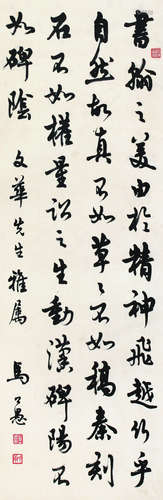 書翰之美由於精神飛越行乎
自然故真不如草草不如稿秦刻
石不如權量詔之生動漢碑陽不
如碑陰
文華先生雅屬
馬公愚